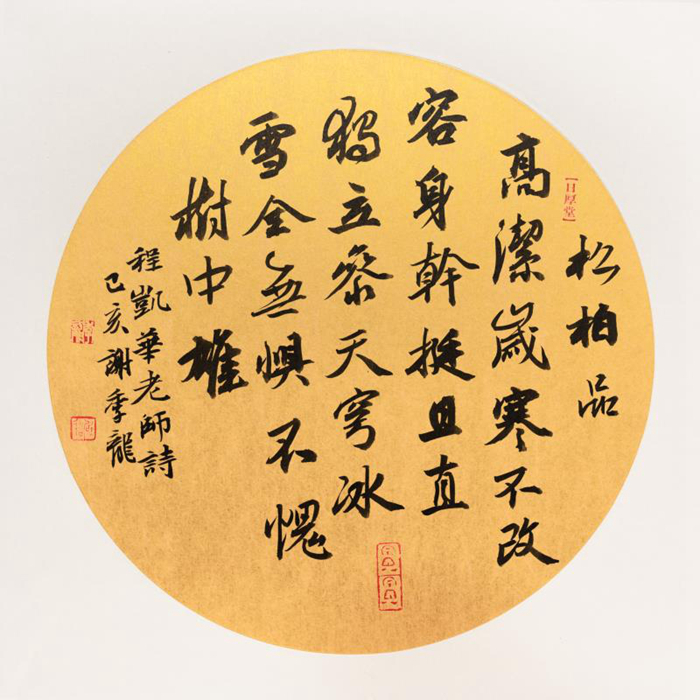 松柏品
【日厚堂】
高潔歲寒不改
容身幹挺且直
獨立參天穹冰
雪全無懼不愧
樹中雄
程凱華老師詩
己亥謝季龍